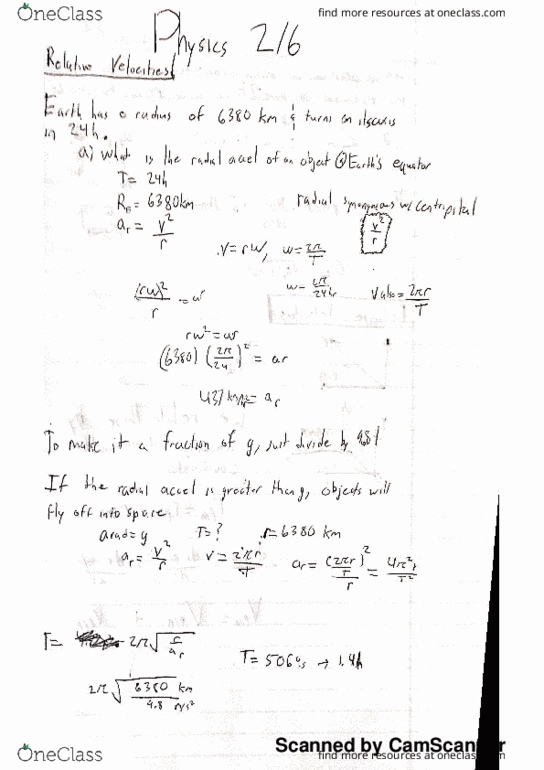 OneClass
find more resources at oneclass.com
Physics 2/6
Relative Velocities
Earth has a radius of 6380 km & turns on its axis
in 24h.
a) What is the radial accel of an object @ Earth's equator
T= 24h
R_E = 6380km
radial synonymous w/ centripital
a_r = v²/r
v²/r
V=rω, ω=2π/T
(rω)²/r = ar
ω= 2π/24hr
V also = 2πr/T
rω² = ar
(6380) (2π/24)² = ar
437 = a_r
To make it a fraction of g, just divide by 9.81
If the radial accel is greater than g, objects will
fly off into space.
arad=g T=? r=6380 km
a_r = v²/r V = 2πr/T ar = (2πr/T)²/r = 4π²r/T²
T= 2π√(r/a_r)
T= 5064s → 1.4h
2π√(6380 km/9.8 m/s²)
Scanned by CamScanner
OneClass
find more resources at oneclass.com